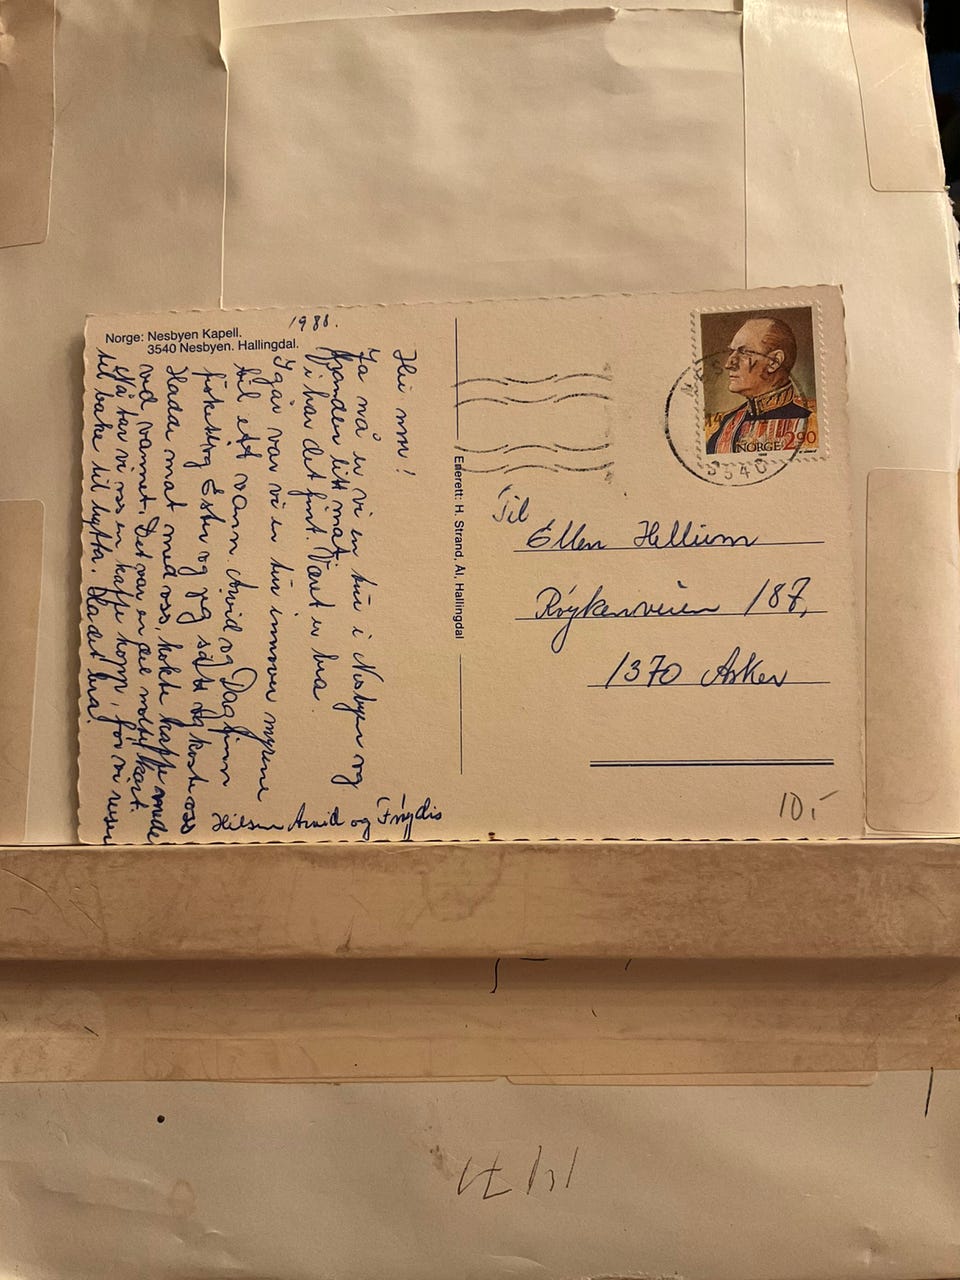 1988.
Norge: Nesbyen Kapell.
3540 Nesbyen. Hallingdal.
Hei mor!
Ja nå er vi en tur i Nesbyen og
litt mat,
Vi har det fint. Været er bra.
Igår var vi en tur innover myrene
til ett vann. Arvid og Dagfinn
fisket og Ester og jeg satt og koste oss
Hadde mat med oss, kokte kaffe nede
ved vannet. Det var en del molte kart.
Nå tar vi oss en kaffe kopp, før vi reiser
tilbake til hytta. Ha det bra!
Hilsen Arvid og Frøydis
Enerett: H. Strand, Ål, Hallingdal
NORGE 2.90
3540
Til
Ellen Hellum
Røykenveien 187,
1370 Asker
10,-